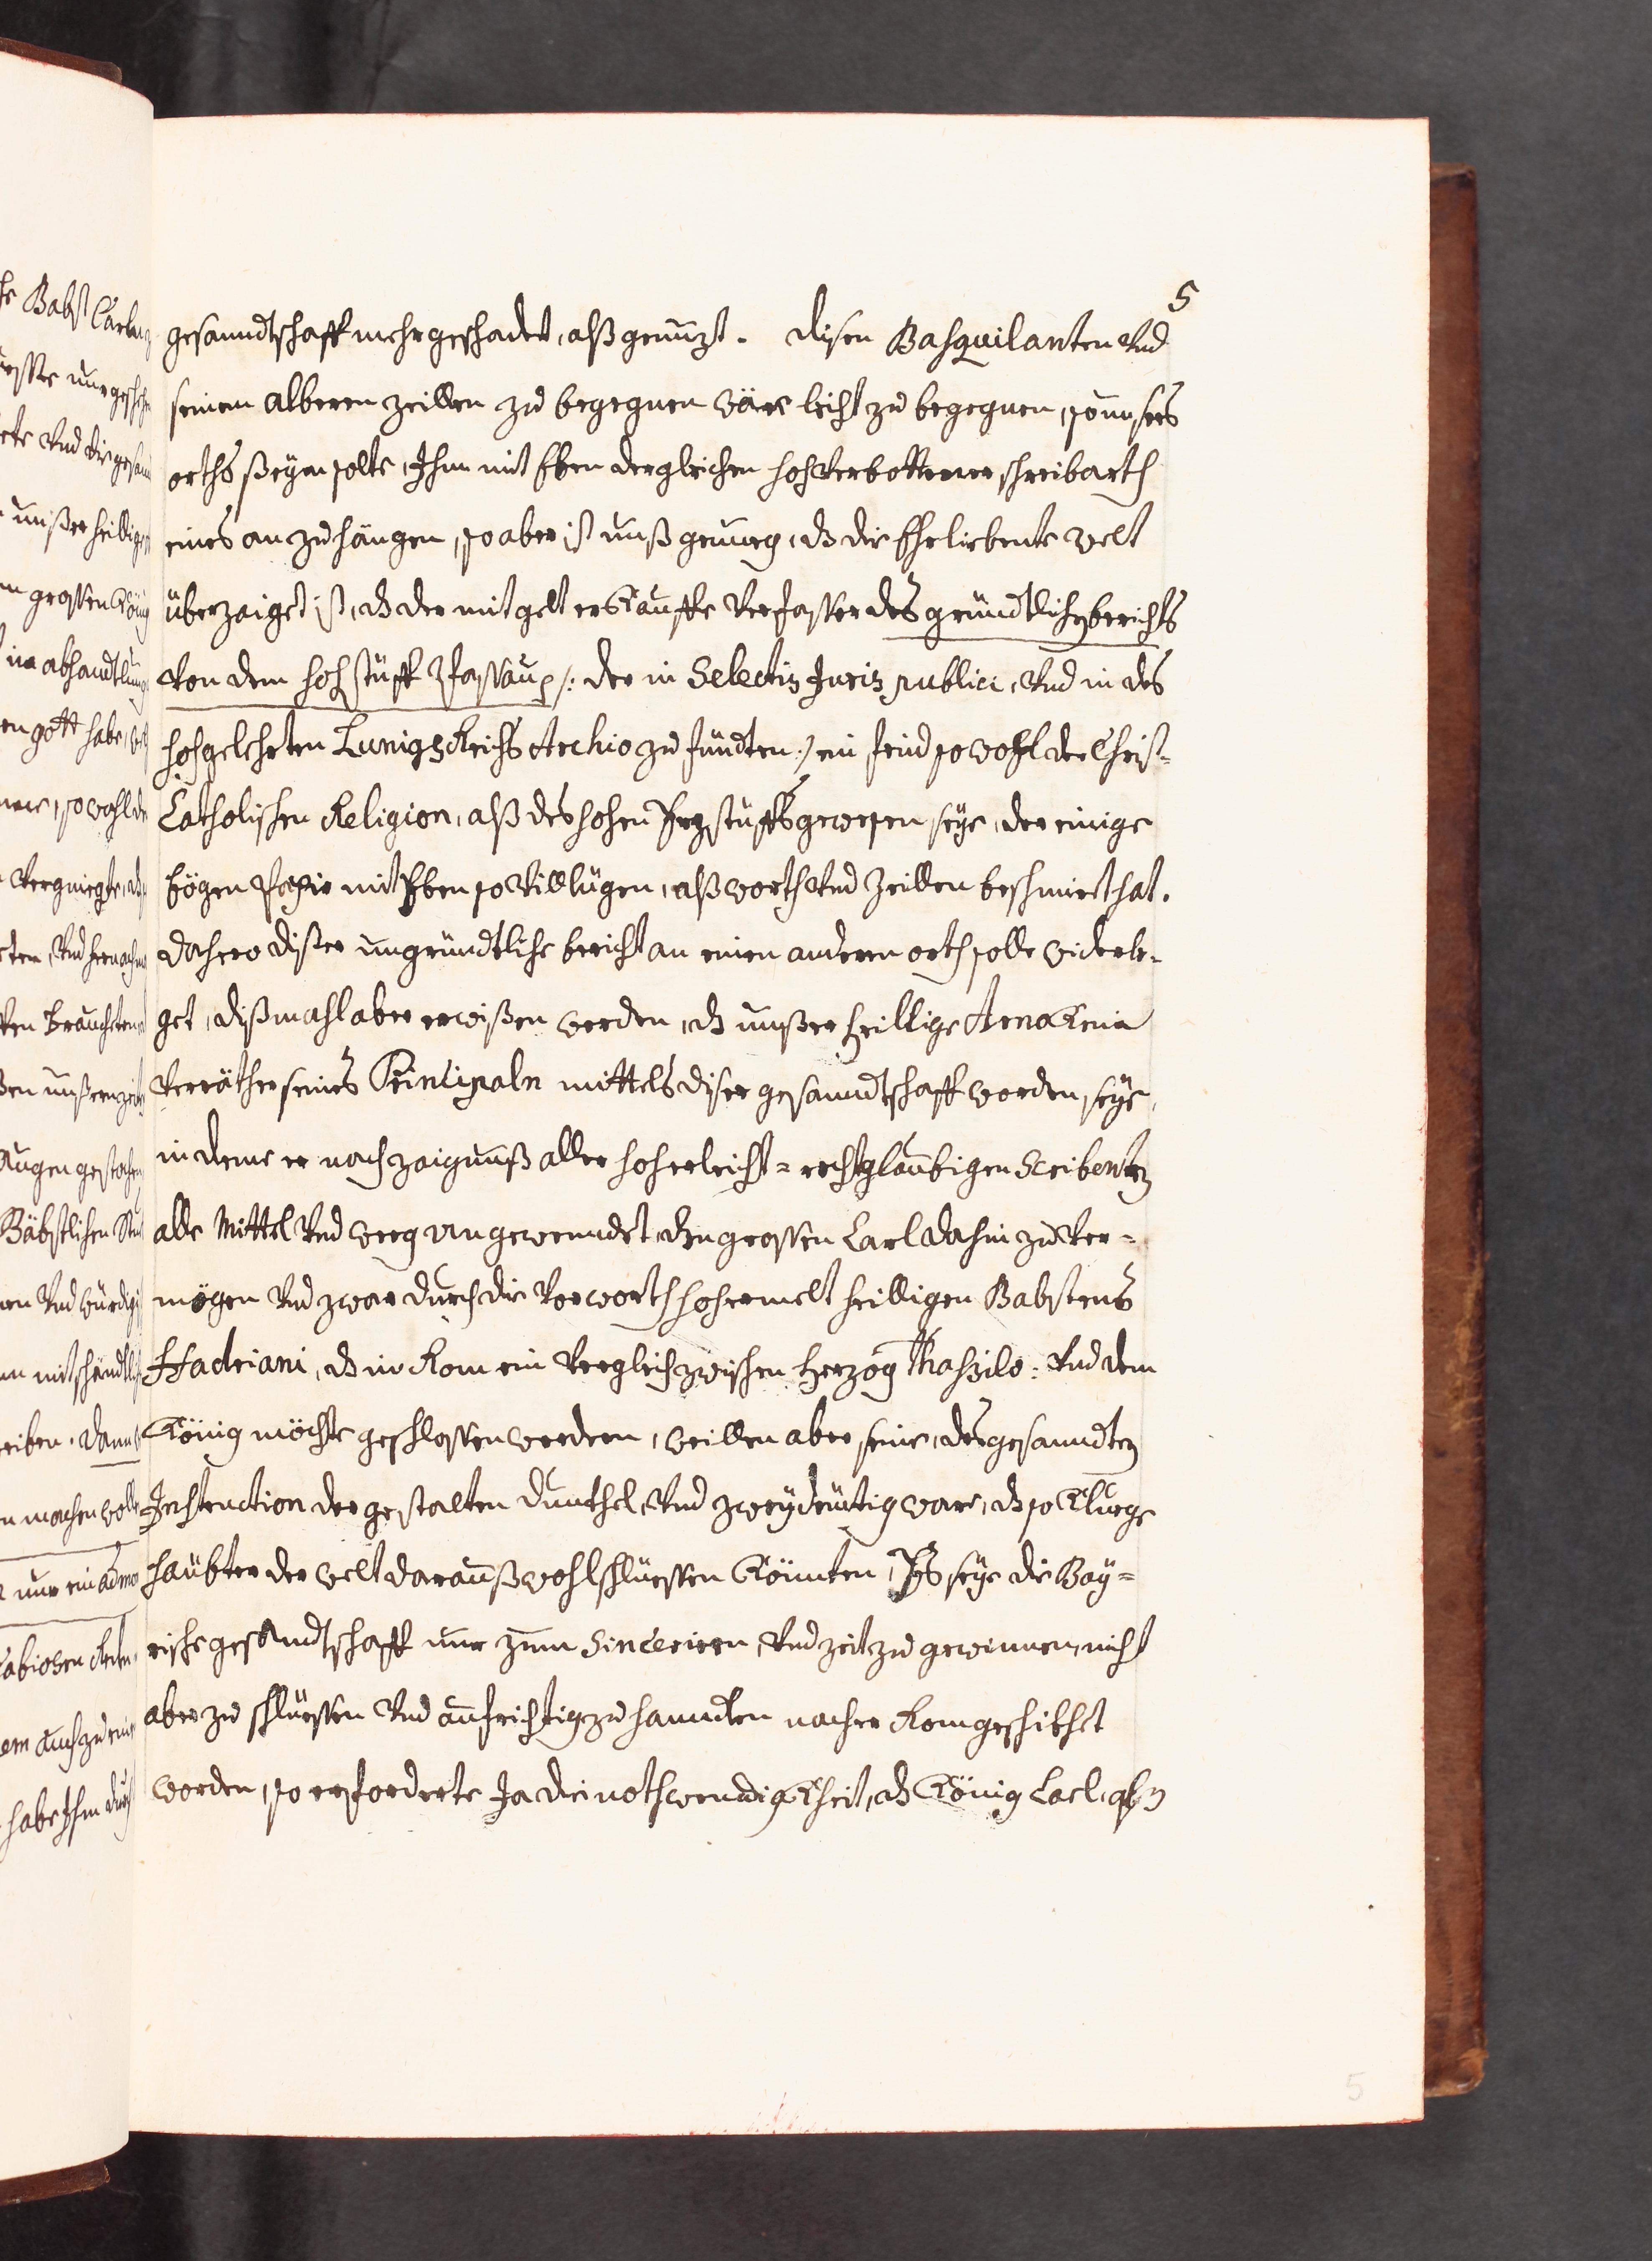 5
gesanndtschafft mehr geschadet, alß genuzt. disen Basquilanten vnd
seinem alberen zeillen zu begegnen wäre leicht zu begegnen, so unsers
orths seyen solte, Ihm mit Eben dergleichen hochverbottener schreibarth
eines an zu hängen, so aber ist unß genueg, dz die Ehrliebente welt
überzaiget ist, dz der mit gelt erkauffte verfasser des gründtlichen berichts
von dem hochstüfft Passau /: der in Selectis Juris publici, vnd in des
hochgelehrten Lunigs Reichs Archio zu fündten :/ ein feind so wohl der Christ=
Catholischen Religion, alß des hohen Erzstüffts gewesen seye, der einige
bögen Papir mit Eben so vill lügen, alß worth vnd zeillen beschmiert hat.
dahero diser ungründtliche bericht an einen anderen orth solle widerle=
get, dißmahl aber erwisen werden, dz unser heillige Arno kein
verräther seines Principaln mittels diser gesanndtschafft worden seye,
in deme er nach zaignuß aller hoherleicht= rechtglaubigen Scribenten
alle Mittel vnd weeg angewenndet, den grossen Carl dahin zu ver=
mögen vnd zwar durch die vorworth hohermelt heilligen Babstens
Hadriani, dz in Rom ein vergleich zwischen herzog Thassilo: vnd dem
König möchte geschlossen werden, weillen aber seine, des gesanndten
Instruction der gestalten dunkhel, vnd zweydeutig ware, dz so kluege
haubter der welt darauß wohl schluessen könnten, Es seye die Bay=
rische gesandtschafft nur zum Sinceriren, vnd zeit zu gewinnen, nicht
aber zu schluessen vnd aufrichtig zu hanndlen nacher Rom geschikhet
worden, so erforderte Ja die nothwendigkheit, dz König Carl,